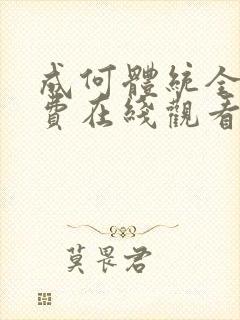 成何體統全
費在綫觀看
莫畏君